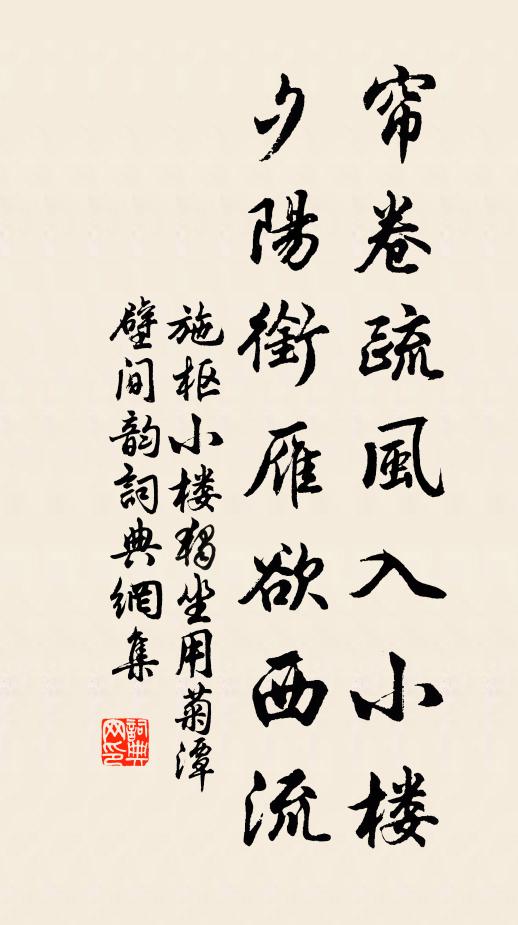 帘卷疏風入小楼
夕陽銜雁欲西流
施枢小楼独坐用菊潭
壁间韵詞典網集
詞典网印